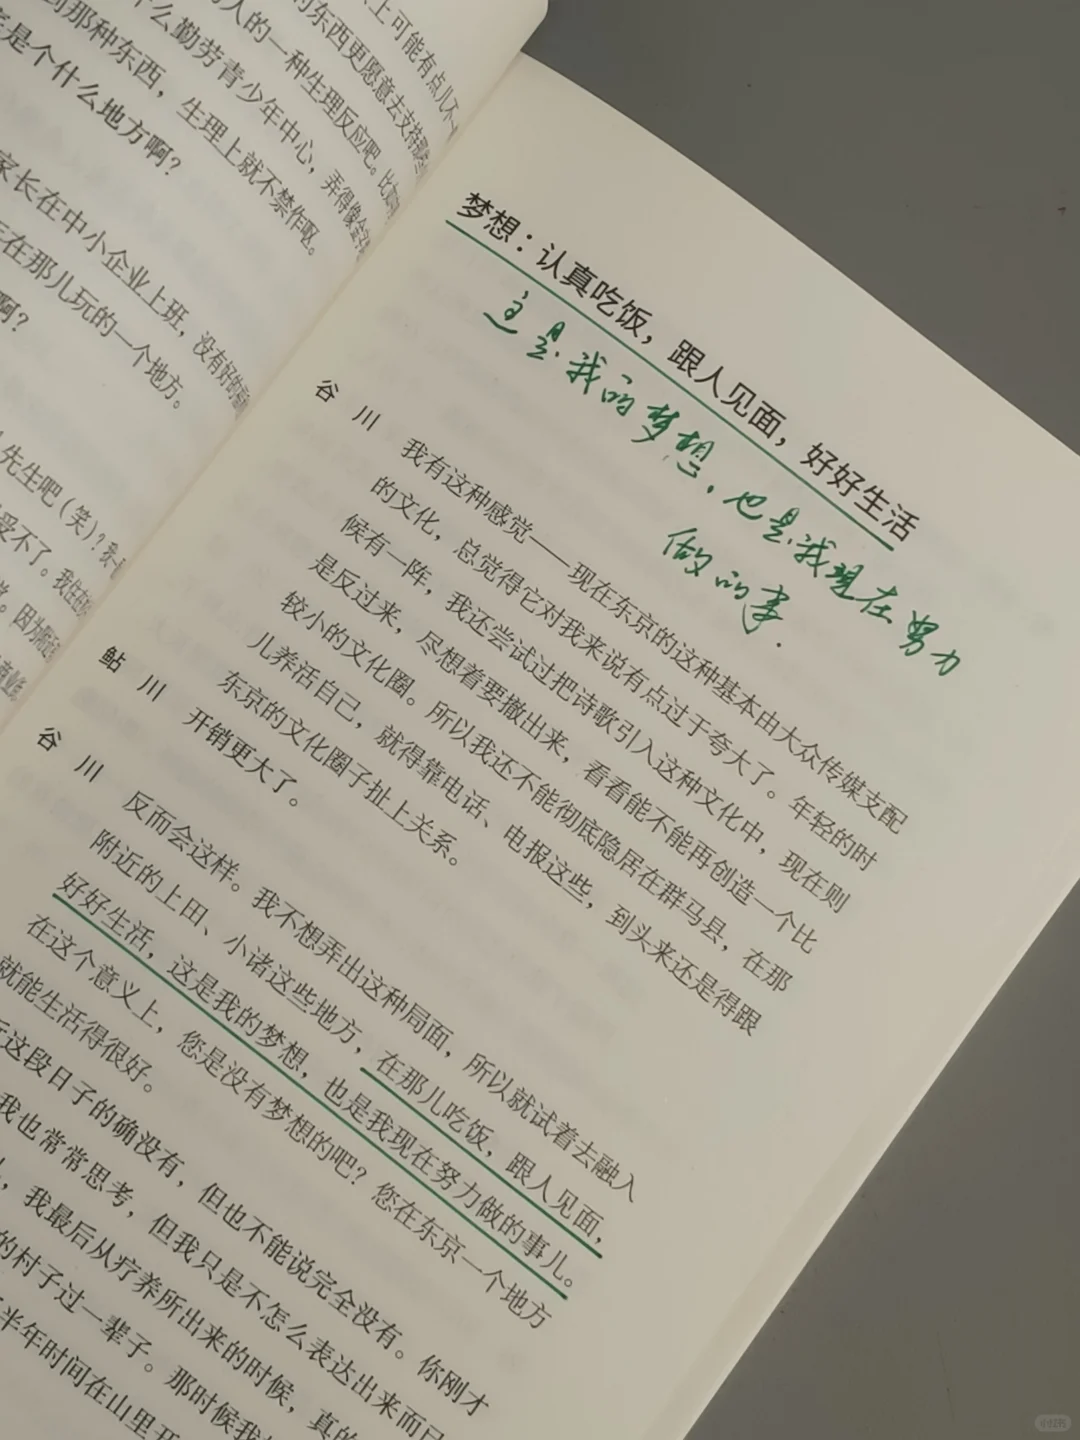 上可能有点儿不
的东西更愿意去支持那些
人的一种生理反应吧。比如
什么勤劳青少年中心，弄得像金字
到那种东西，生理上就不禁作呕。
是个什么地方啊？
家长在中小企业上班，没有好的
在那儿玩的一个地方。
啊？
先生吧（笑）？我
受不了。我住在
。因为附近
梦想：认真吃饭，跟人见面，好好生活
这是我的梦想，也是我现在努力
做的事.
谷川 我有这种感觉——现在东京的这种基本由大众传媒支配
的文化，总觉得它对我来说有点过于夸大了。年轻的时
候有一阵，我还尝试过把诗歌引入这种文化中，现在则
是反过来，尽想着要撤出来，看看能不能再创造一个比
较小的文化圈。所以我还不能彻底隐居在群马县，在那
儿养活自己，就得靠电话、电报这些，到头来还是得跟
东京的文化圈子扯上关系。
鲇川 开销更大了。
谷川 反而会这样。我不想弄出这种局面，所以就试着去融入
附近的上田、小诸这些地方，在那儿吃饭，跟人见面，
好好生活，这是我的梦想，也是我现在努力做的事儿。
在这个意义上，您是没有梦想的吧？您在东京一个地方
就能生活得很好。
这段日子的确没有，但也不能说完全没有。你刚才
我也常常思考，但我只是不怎么表达出来而已
，我最后从疗养所出来的时候，真的
的村子过一辈子。那时候我
半年时间在山里